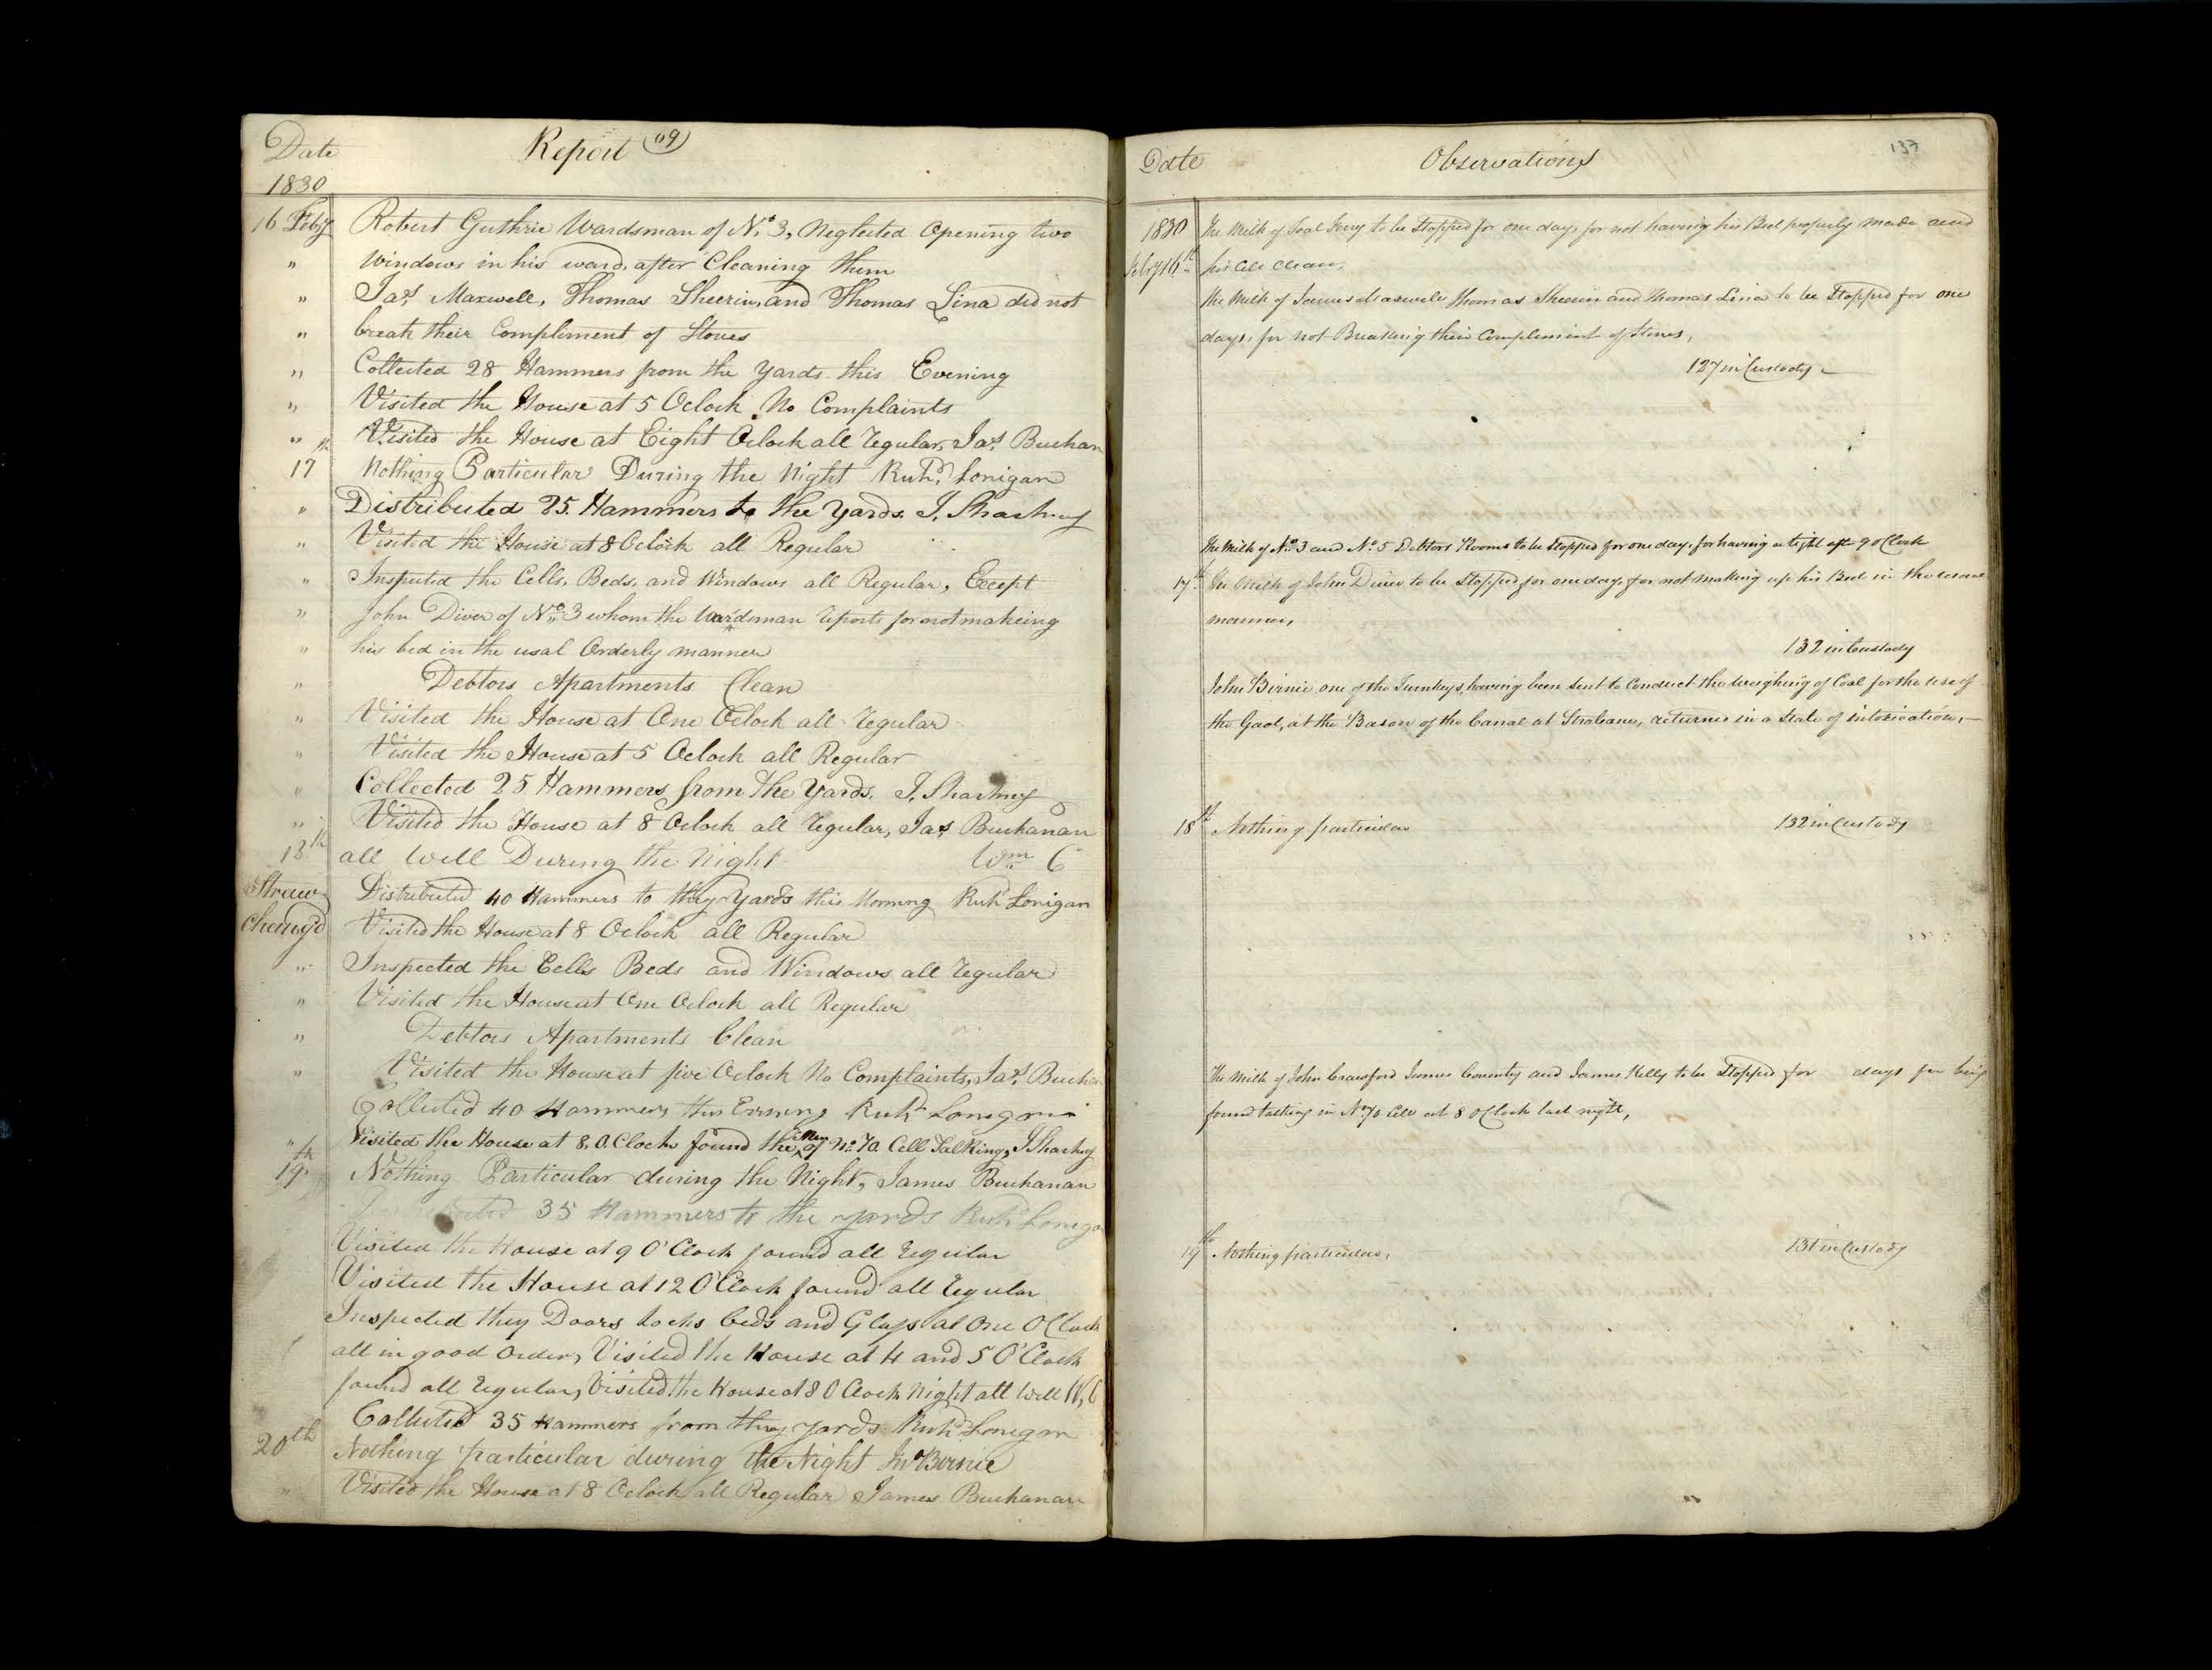 Date
Report 119
1830
16 Feby Robert Guthrie Wardsman of No. 3, Neglected Opening two
" Windows in his ward, after Cleaning them
" Jas. Maxwell, Thomas Sheerin, and Thomas Lina did not
" break their Compliment of Stones
" Collected 28 Hammers from the Yards this Evening
" Visited the House at 5 Oclock No Complaints
" Visited the House at Eight Oclock all regular, Jas. Buchan
17th Nothing Particular During the Night Richd. Lonigan
" Distributed 25 Hammers to the Yards. J. Sharkey
" Visited the House at 8 Oclock all Regular
" Inspected the Cells, Beds, and Windows all Regular, Except
" John Diver of No. 3 whom the Wardsman reports for not makeing
" his bed in the usal Orderly manner
" Debtors Apartments Clean
" Visited the House at One Oclock all regular
" Visited the House at 5 Oclock all Regular
" Collected 25 Hammers from the Yards. J. Sharkey
" Visited the House at 8 Oclock all regular, Jas. Buchanan
18th all well During the Night Wm C
Straw Distributed 40 Hammers to they Yards this Morning Richd Lonigan
Chang'd Visited the House at 8 Oclock all Regular
" Inspected the Cells Beds and Windows all regular
" Visited the House at One Oclock all Regular
" Debtors Apartments Clean
" Visited the House at five Oclock No Complaints, Jas. Buchan
Collected 40 Hammers this Evening Richd Lonigan
" Visited the House at 8. O.Clock found the Men of No. 70 Cell Talking, J Sharkey
19th Nothing Particular during the Night, James Buchanan
Distributed 35 Hammers to the yards Richd Loniga
Visited the House at 9 O'Clock found all regular
Visited the House at 12 O'Clock found all regular
Inspected they Doors Locks beds and Glass at One OClock
all in good Order, Visited the House at 4 and 5 O'Clock
found all regular, Visited the House at 8 OClock Night all well W, C
Collected 35 Hammers from they yards Richd Lonigan
20th Nothing particular during the Night Jno Birnie
" Visited the House at 8 Oclock all Regular James Buchanan
Date
Observations
137
1830 The Milk of Jerry to be Stopped for one day, for not having his Bed properly made and
Feby 16th his Cell Clean,
The Milk of James Maxwell Thomas Sheerin and Thomas Lina to be Stopped for one
days, for not Breaking their Complement of Stones,
127 in Custody
The Milk of No. 3 and No. 5 Debtors Rooms to be Stopped for one day, for having a light aft 9 oClock
17th The Milk of John Diver to be Stopped for one day, for not making up his Bed in the usual
manner,
132 in Custody
John Birnie one of the Turnkeys, having been Sent to Conduct the weighing of Coal for the use of
the Gaol, at the Bason of the Canal at Strabane, returned in a State of intoxication,
18th Nothing particular 132 in Custody
The Milk of John Crawford James Coventy and James Kelly to be Stopped for days for being
found talking in No. 70 Cell at 8 oClock last night,
19th Nothing particular, 131 in Custody